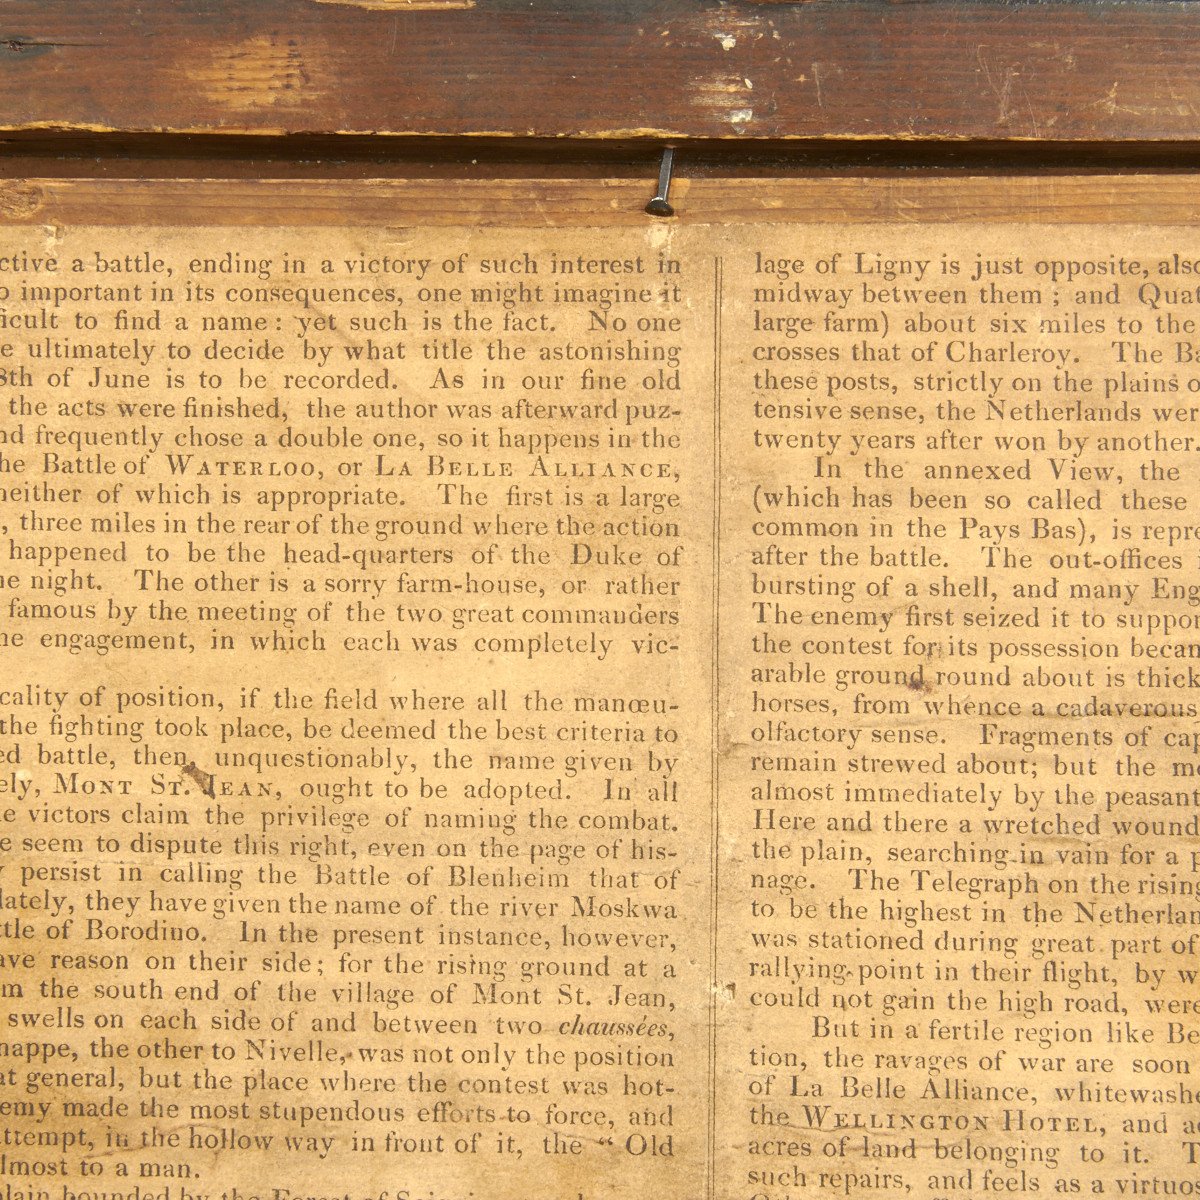 ctive a battle, ending in a victory of such interest in
o important in its consequences, one might imagine it
ficult to find a name: yet such is the fact. No one
e ultimately to decide by what title the astonishing
8th of June is to be recorded. As in our fine old
the acts were finished, the author was afterward puz-
nd frequently chose a double one, so it happens in the
he Battle of WATERLOO, or LA BELLE ALLIANCE,
neither of which is appropriate. The first is a large
, three miles in the rear of the ground where the action
happened to be the head-quarters of the Duke of
he night. The other is a sorry farm-house, or rather
famous by the meeting of the two great commanders
he engagement, in which each was completely vic-
cality of position, if the field where all the manœu-
the fighting took place, be deemed the best criteria to
ed battle, then, unquestionably, the name given by
ely, MONT ST. JEAN, ought to be adopted. In all
e victors claim the privilege of naming the combat.
e seem to dispute this right, even on the page of his-
y persist in calling the Battle of Blenheim that of
lately, they have given the name of the river Moskwa
ttle of Borodino. In the present instance, however,
ave reason on their side; for the rising ground at a
m the south end of the village of Mont St. Jean,
swells on each side of and between two chaussées,
nappe, the other to Nivelle, was not only the position
at general, but the place where the contest was hot-
emy made the most stupendous efforts to force, and
attempt, in the hollow way in front of it, the “ Old
lmost to a man.
plain bounded by the Forest of
lage of Ligny is just opposite, also
midway between them; and Quat
large farm) about six miles to the
crosses that of Charleroy. The Ba
these posts, strictly on the plains o
tensive sense, the Netherlands wer
twenty years after won by another.
In the annexed View, the
(which has been so called these
common in the Pays Bas), is repre
after the battle. The out-offices
bursting of a shell, and many Eng
The enemy first seized it to suppor
the contest for its possession becam
arable ground round about is thick
horses, from whence a cadaverous
olfactory sense. Fragments of cap
remain strewed about; but the mo
almost immediately by the peasant
Here and there a wretched wound
the plain, searching in vain for a p
nage. The Telegraph on the rising
to be the highest in the Netherlan
was stationed during great part of
rallying point in their flight, by w
could not gain the high road, were
But in a fertile region like Be
tion, the ravages of war are soon
of La Belle Alliance, whitewashe
the WELLINGTON HOTEL, and ac
acres of land belonging to it. T
such repairs, and feels as a virtuos